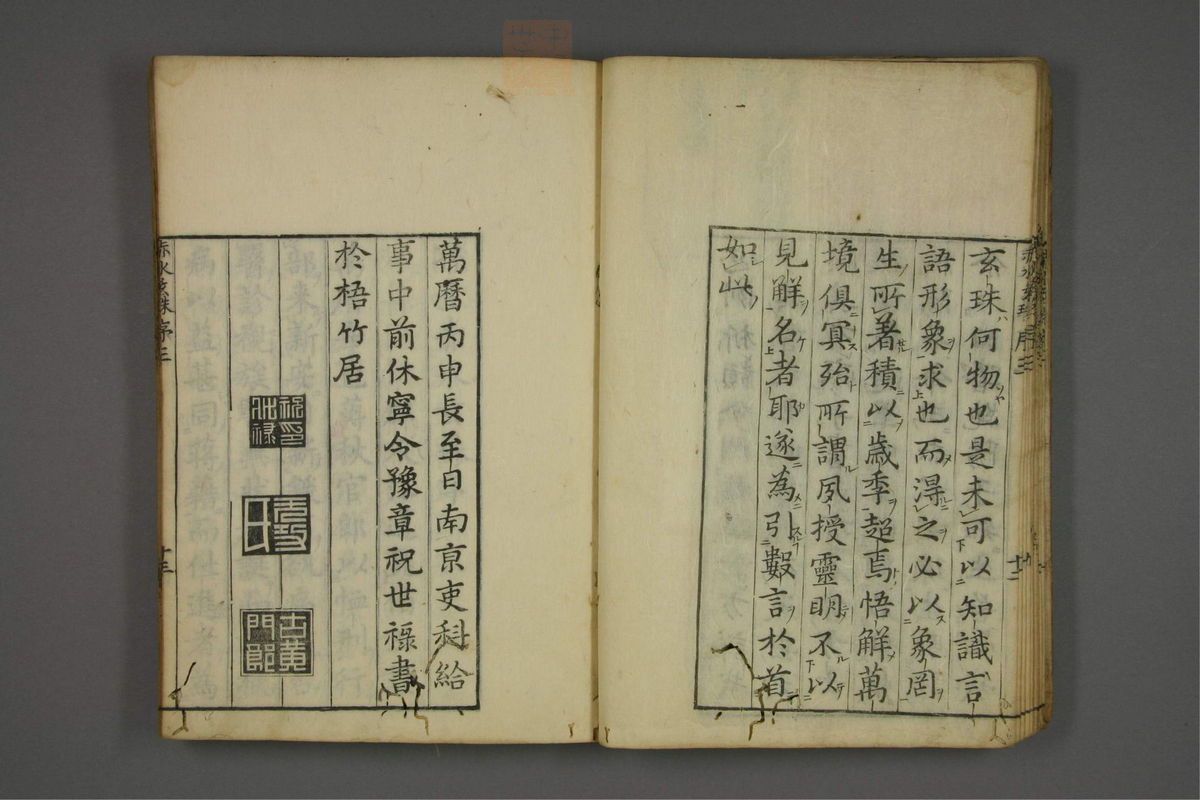 玄珠何物也是未可以知識言
語形象求也而淂之必以象罔
生所著積以歳季超焉悟解萬
境俱冥殆所謂夙授靈明不以
見解名者耶遂為引數言於首
如此
萬曆丙申長至日南京吏科給
事中前休寧令豫章祝世祿書
於梧竹居
祝印世祿
无功氏
古黃門郎
赤水玄珠 序三 十三